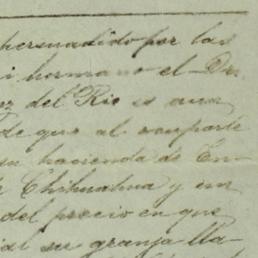 persuadido por las
i hermano el Dr.
ez del Rio es una
de que al
su hacienda de En-
Chihuahua y un
del precio en que
ial su granja lla-